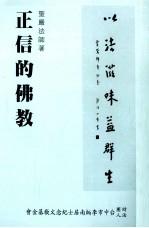 以法滋味益群生
聖嚴法師著
正信的佛教
財團法人台中市李炳南居士紀念文教基金會